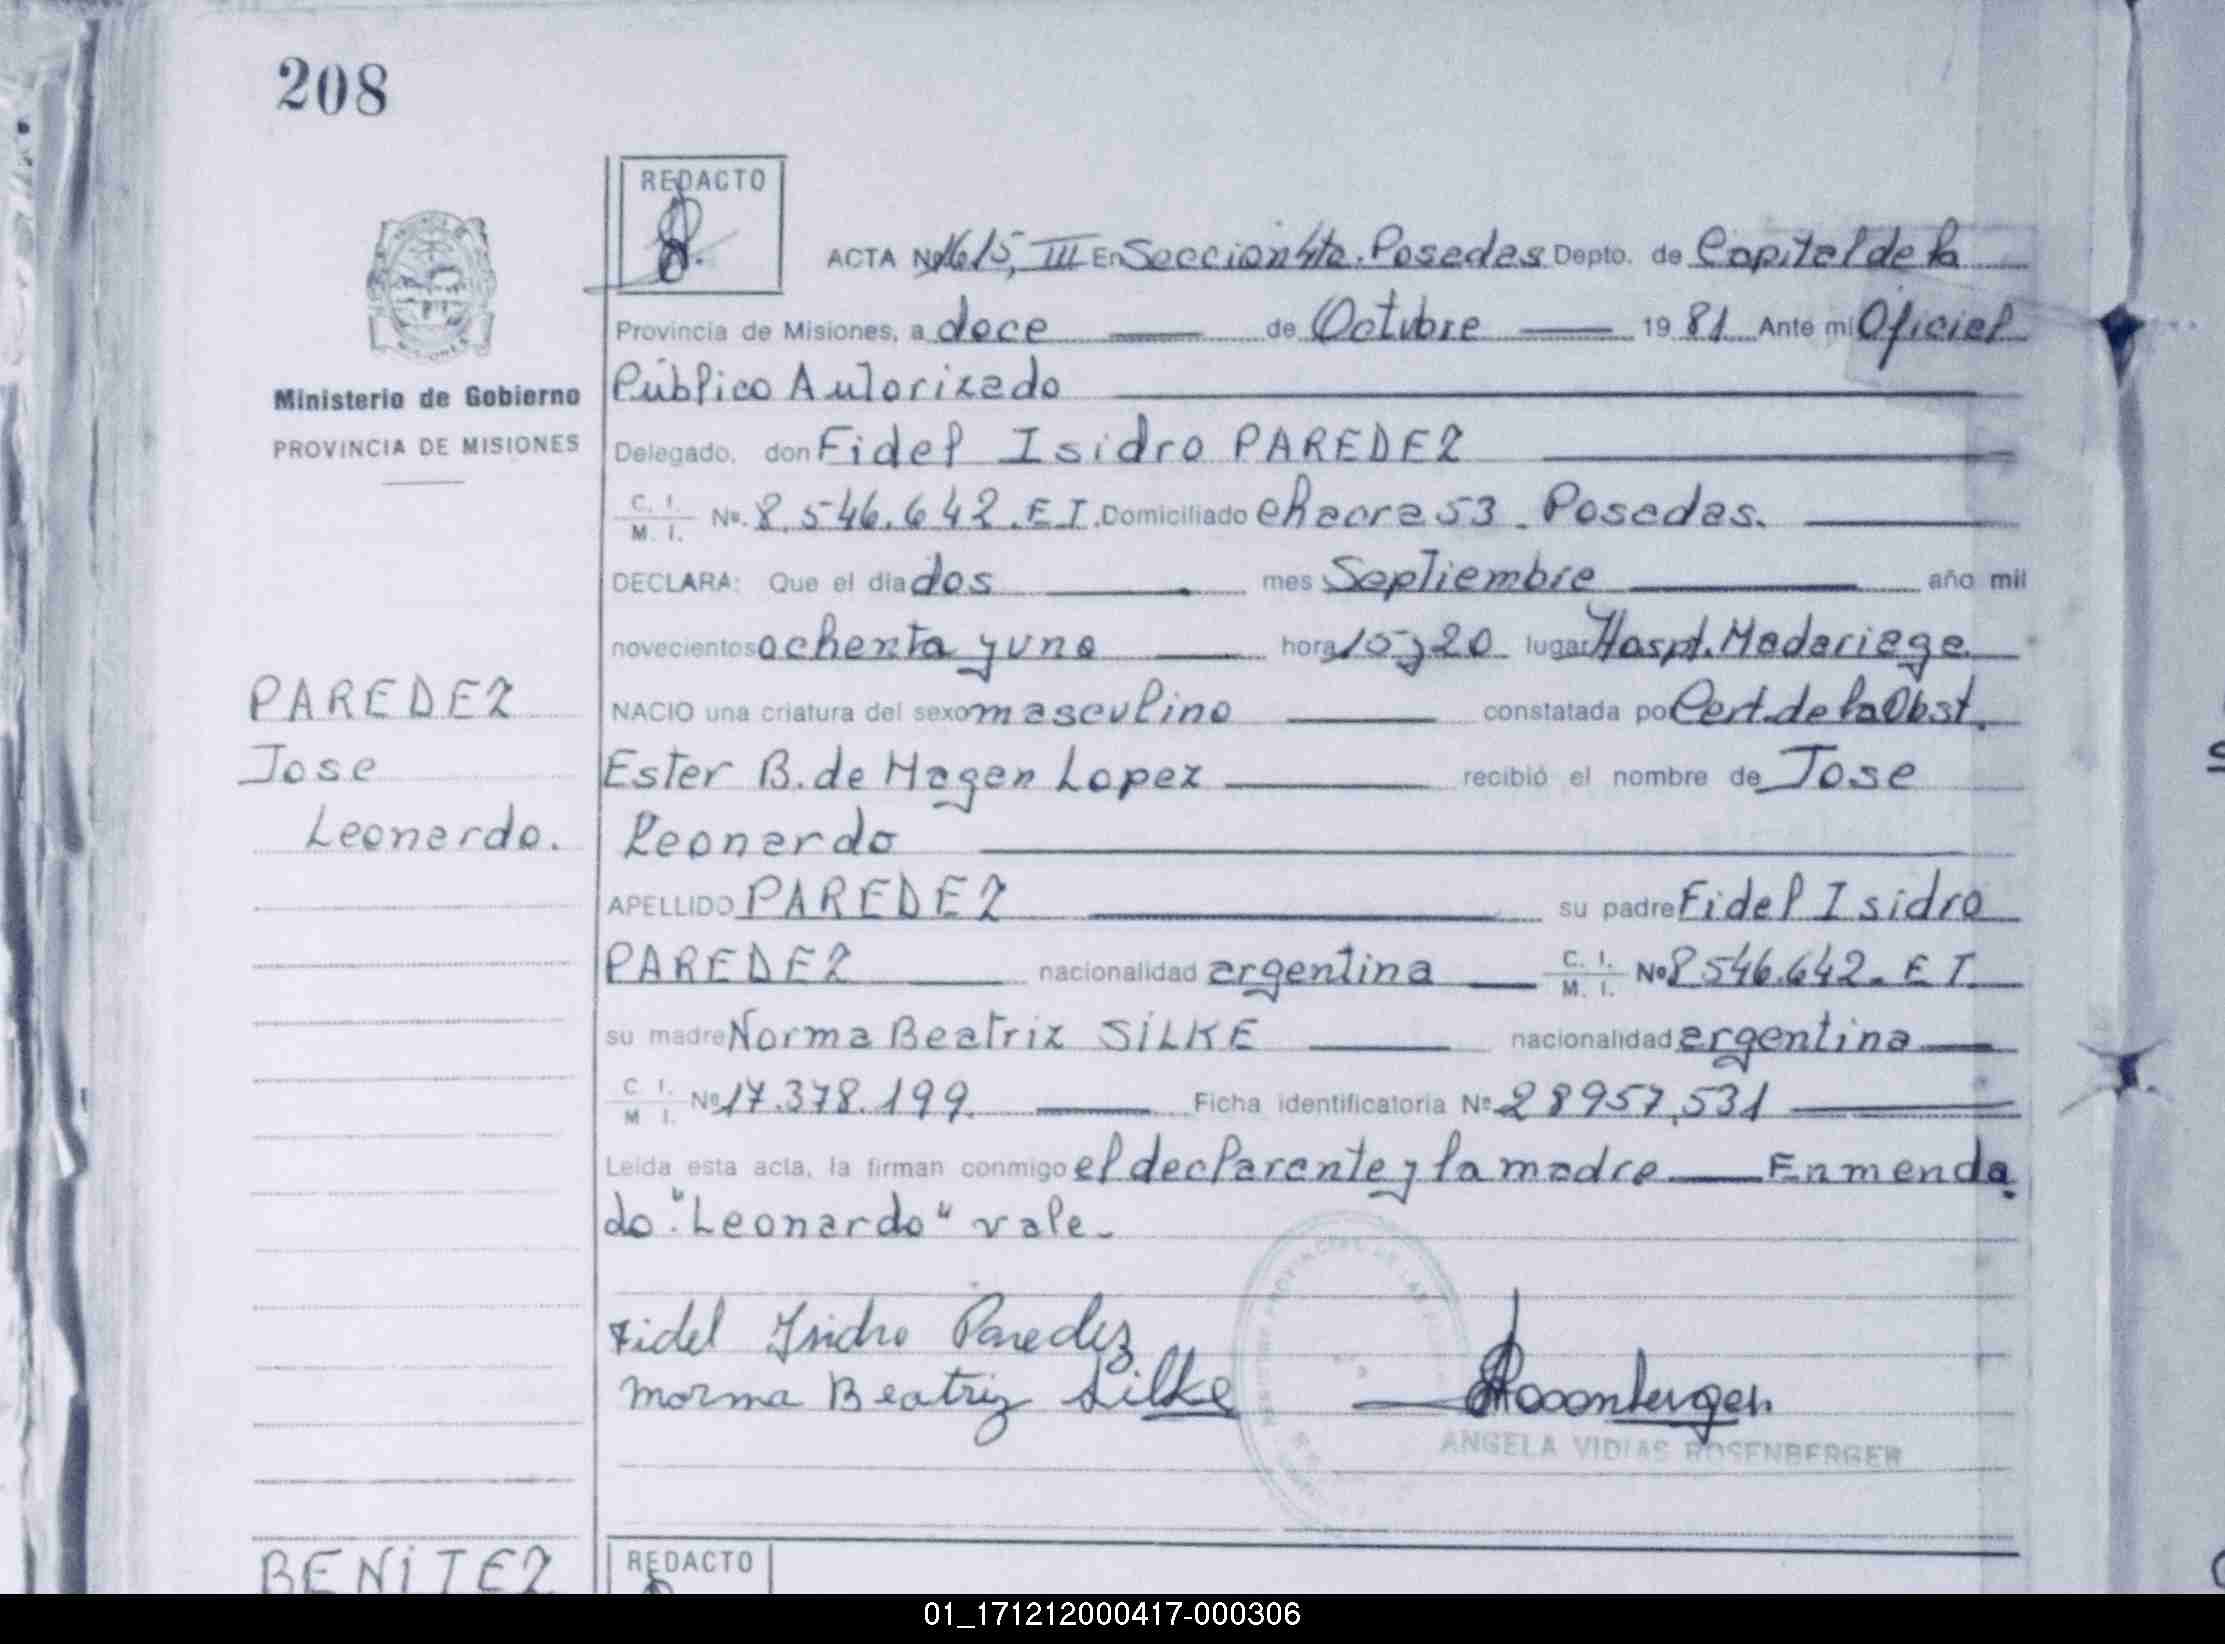 208
REDACTO
ACTA Nº 1615, III En Seccion 4ta. Posadas Depto. de Capital de la
Provincia de Misiones, a doce de Octubre 19 81 Ante mi Oficial
Ministerio de Gobierno
PROVINCIA DE MISIONES
Público Autorizado
Delegado, don Fidel Isidro PAREDEZ
C. I. M. I. Nº. 8.546.642. E T. Domiciliado chacra 53. Posadas.
DECLARA: Que el dia dos mes Septiembre año mil
novecientos ochenta y uno hora 15 y 20 lugar Hospt. Madariaga
PAREDEZ
Jose
Leonardo.
NACIO una criatura del sexo masculino constatada por Cert. de la Obst.
Ester B. de Hagen Lopez recibió el nombre de Jose
Leonardo
APELLIDO PAREDEZ su padre Fidel Isidro
PAREDEZ nacionalidad argentina C. I. M. I. Nº 8546.642. E T.
su madre Norma Beatriz SILKE nacionalidad argentina
C. I. M I. Nº 17.378.199. Ficha identificatoria Nº 28957,531
Leída esta acta, la firman conmigo el declarante y la madre Enmenda
do: "Leonardo" vale.
Fidel Isidro Paredez
Norma Beatriz Silke
Rosenberger
ANGELA VIDIAS ROSENBERGER
BENITEZ
REDACTO
01_171212000417-000306